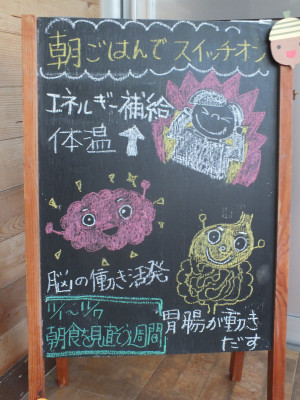 朝ごはんで スイッチオン
エネルギー補給
体温↑
脳の働き活発
胃腸が働き
だす
朝食を見直そう週間